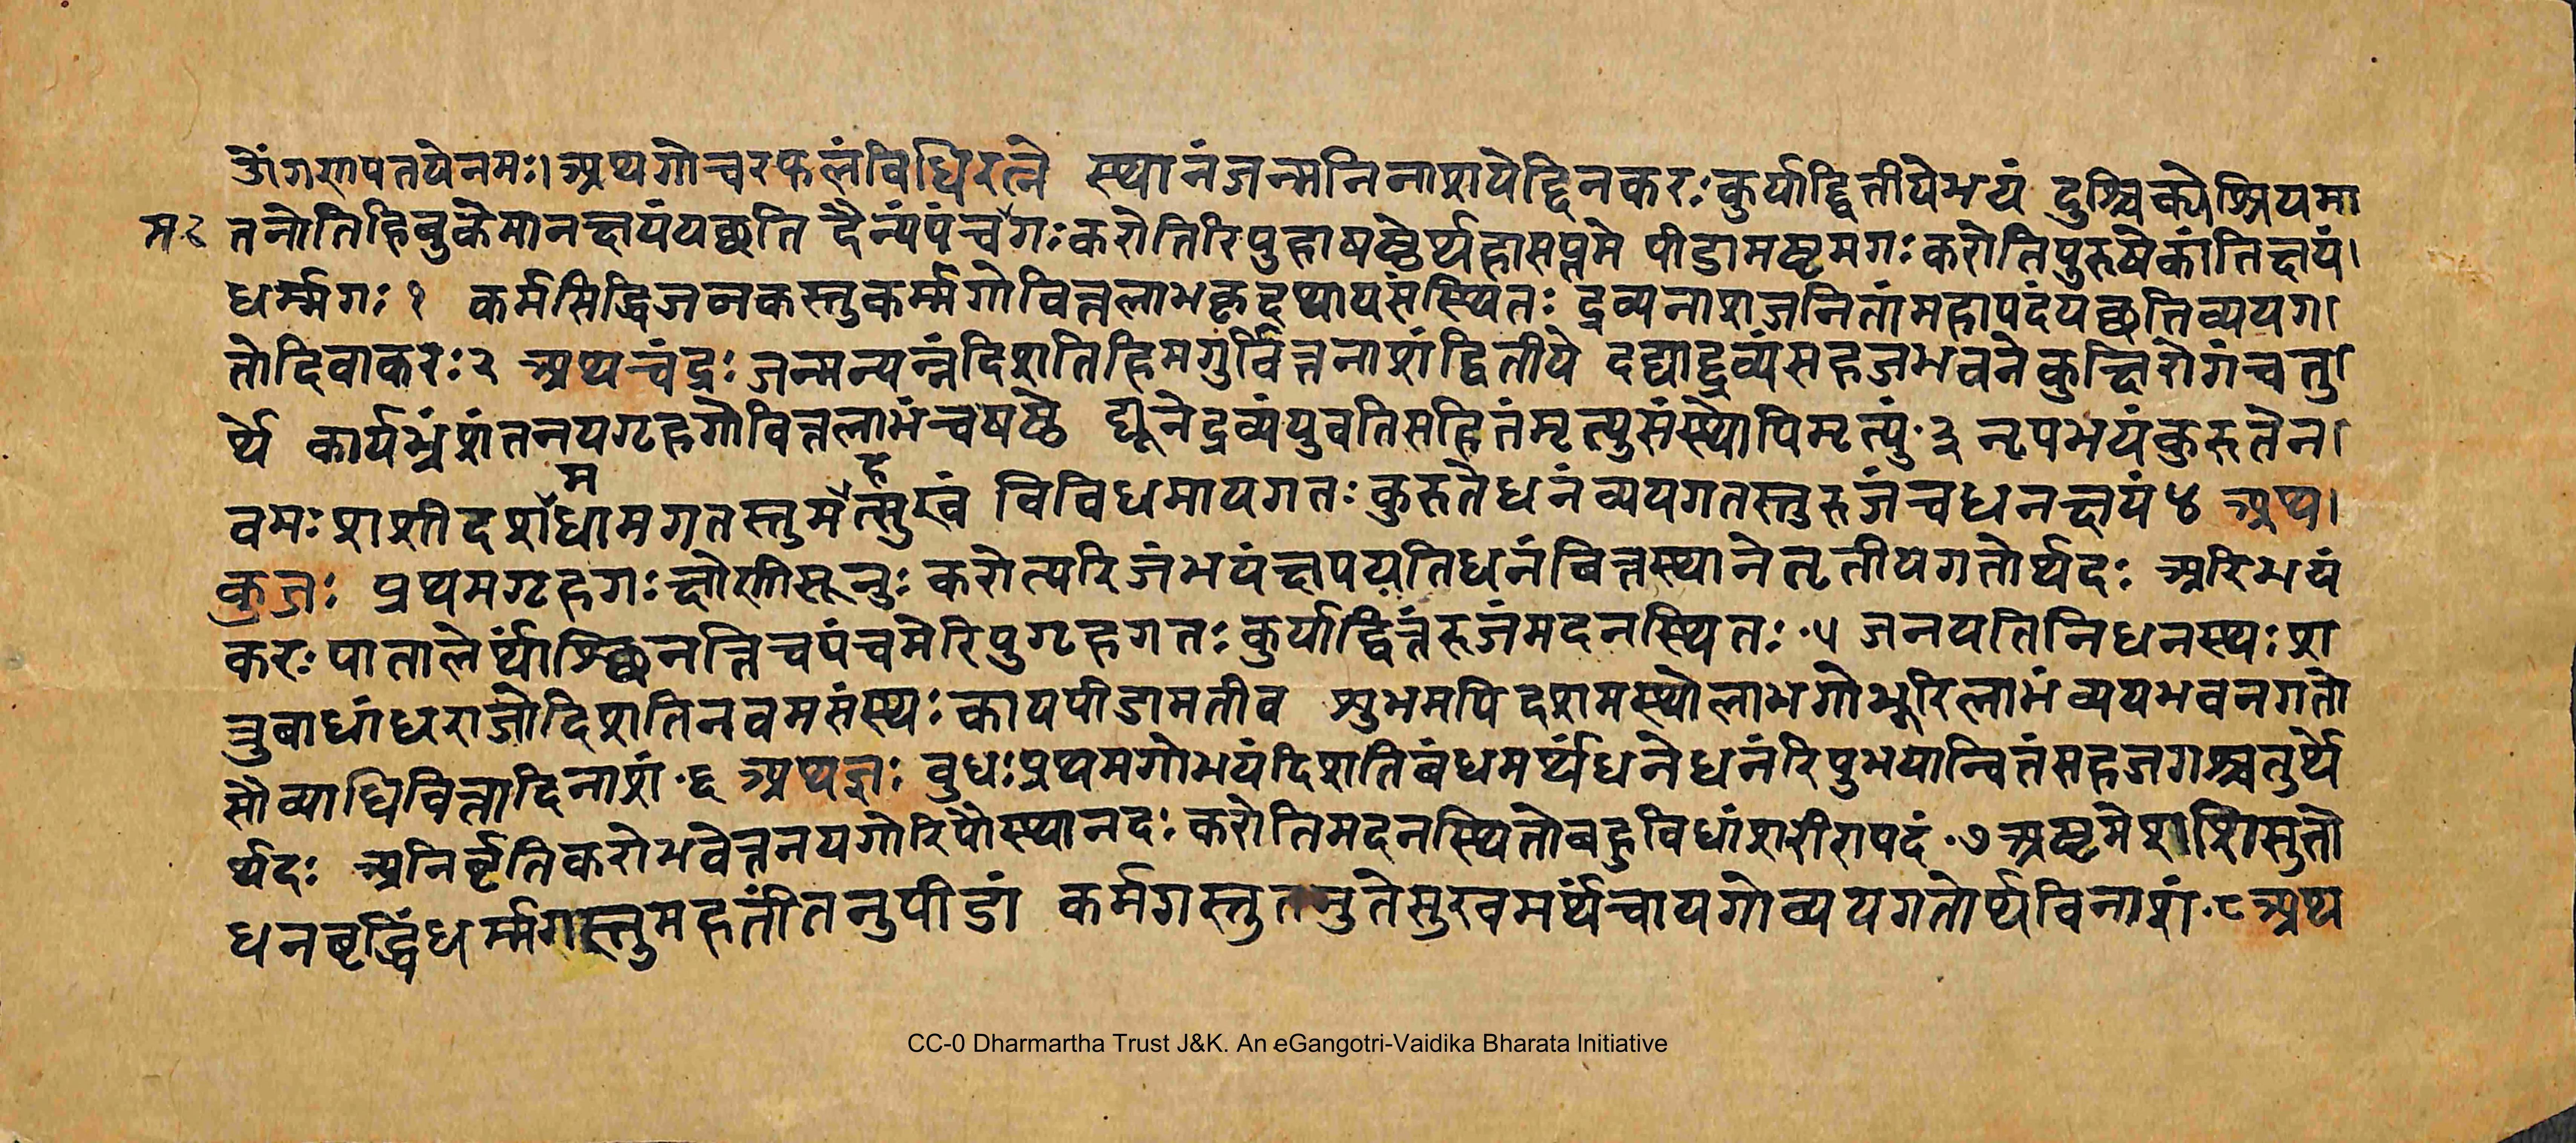 ॐगणपतयेनमः। अथगोचरफलंविधिरत्ने स्थानंजन्मनिनाशयेद्दिनकरःकुर्याद्द्वितीयेभयं दुश्चिक्येश्रियमा
म२ तनोतिहिबुकेमानक्षयंयछति दैन्यंपंचगःकरोतिरिपुहाषष्ठेर्थहासप्तमे पीडामष्टमगःकरोतिपुरुषेकांतिक्षयं।
धर्म्मगः१ कर्मसिद्धिजनकस्तुकर्म्मगोवित्तलाभकृदथायसंस्थितः द्रव्यनाशजनितांमहापदंयछतिव्ययग।
तोदिवाकरः२ अथचंद्रः जन्मन्यन्नंदिशतिहिमगुर्वित्तनाशंद्वितीये दद्याद्द्रव्यंसहजभवनेकुक्षिरोगंचतु।
र्थे कार्यभ्रंशंतनयगृहगोवित्तलाभंचषष्ठे द्यूनेद्रव्यंयुवतिसहितंमृत्युसंस्थोपिमृत्युं·३ नृपभयंकुरुतेन।
म ह
वमःशशीदशधामगतस्तुमत्सुखं विविधमायगतःकुरुतेधनंव्ययगतस्तुरुजंचधनक्षयं४ अथ।
कुजः प्रथमगृहगःक्षोणीसूनुःकरोत्यरिजंभयंक्षपयतिधनंवित्तस्थानेतृतीयगतोर्थदः अरिभयं
करःपातालेर्थांश्छिनत्तिचपंचमेरिपुगृहगतःकुर्याद्वित्तंरुजंमदनस्थितः·५ जनयतिनिधनस्थःश
त्रुबाधांधराजोदिशतिनवमसंस्थःकायपीडामतीव शुभमपिदशमस्थोलाभगोभूरिलाभंव्ययभवनगतो
सौव्याधिवित्तादिनाशं·६ अथज्ञः वुधःप्रथमगोभयंदिशतिबंधमर्थंधनेधनंरिपुभयान्वितंसहजगश्चतुर्थे
र्थदः अनिर्वृतिकरोभवेत्तनयगोरिपौस्थानदःकरोतिमदनस्थितोबहुविधांशरीरापदं·७अष्टमेशशिसुतो
धनबृद्धिंधर्म्मगस्तुमहतींतनुपीडां कर्मगस्तुतनुतेसुखमर्थंचायगोव्ययगतोर्थविनाशं·८अथ
CC-0 Dharmartha Trust J&K. An eGangotri-Vaidika Bharata Initiative